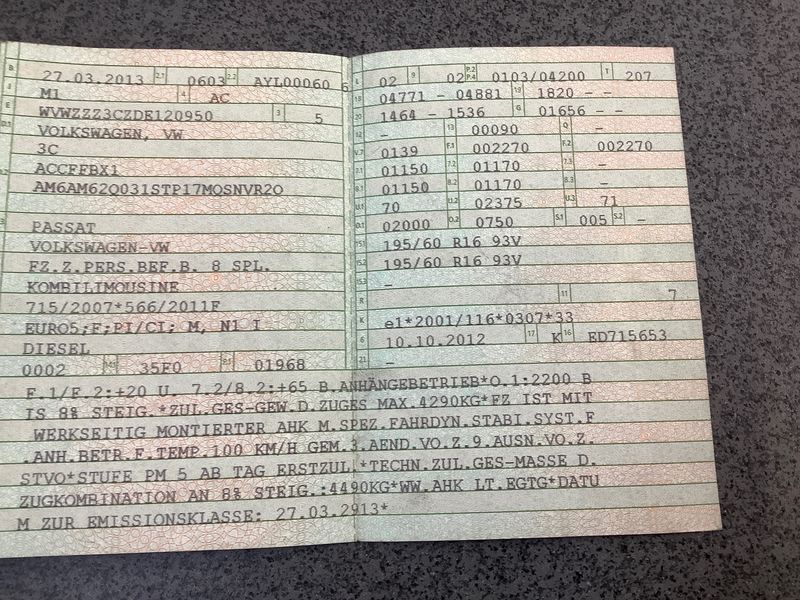 B 27.03.2013 2.1 0603 2.2 AYL00060 6
J M1 4 AC
E WVWZZZ3CZDE120950 3 5
D.1 VOLKSWAGEN, VW
3C
ACCFFBX1
AM6AM62Q031STP17MOSNVR2O
PASSAT
VOLKSWAGEN-VW
FZ.Z.PERS.BEF.B. 8 SPL.
KOMBILIMOUSINE
715/2007*566/2011F
EURO5;F;PI/CI; M, N1 I
DIESEL
0002 35F0 P.1 01968
L 02 9 02 P.2 P.4 0103/04200 T 207
18 04771 - 04881 19 1820 - -
20 1464 - 1536 G 01656 - -
12 - 13 00090 Q -
V.7 0139 F.1 002270 F.2 002270
7.1 01150 7.2 01170 7.3 -
8.1 01150 8.2 01170 8.3 -
U.1 70 U.2 02375 U.3 71
O.1 02000 O.2 0750 S.1 005 S.2 -
15.1 195/60 R16 93V
15.2 195/60 R16 93V
15.3 -
R 11 7
K e1*2001/116*0307*33
6 10.10.2012 17 K 16 ED715653
21 -
F.1/F.2:+20 U. 7.2/8.2:+65 B.ANHÄNGEBETRIEB*O.1:2200 B
IS 8% STEIG.*ZUL.GES-GEW.D.ZUGES MAX.4290KG*FZ IST MIT
WERKSEITIG MONTIERTER AHK M.SPEZ.FAHRDYN.STABI.SYST.F
.ANH.BETR.F.TEMP.100 KM/H GEM.3.AEND.VO.Z.9.AUSN.VO.Z.
STVO*STUFE PM 5 AB TAG ERSTZUL.*TECHN.ZUL.GES-MASSE D.
ZUGKOMBINATION AN 8% STEIG.:4490KG*WW.AHK LT.EGTG*DATU
M ZUR EMISSIONSKLASSE: 27.03.2913*